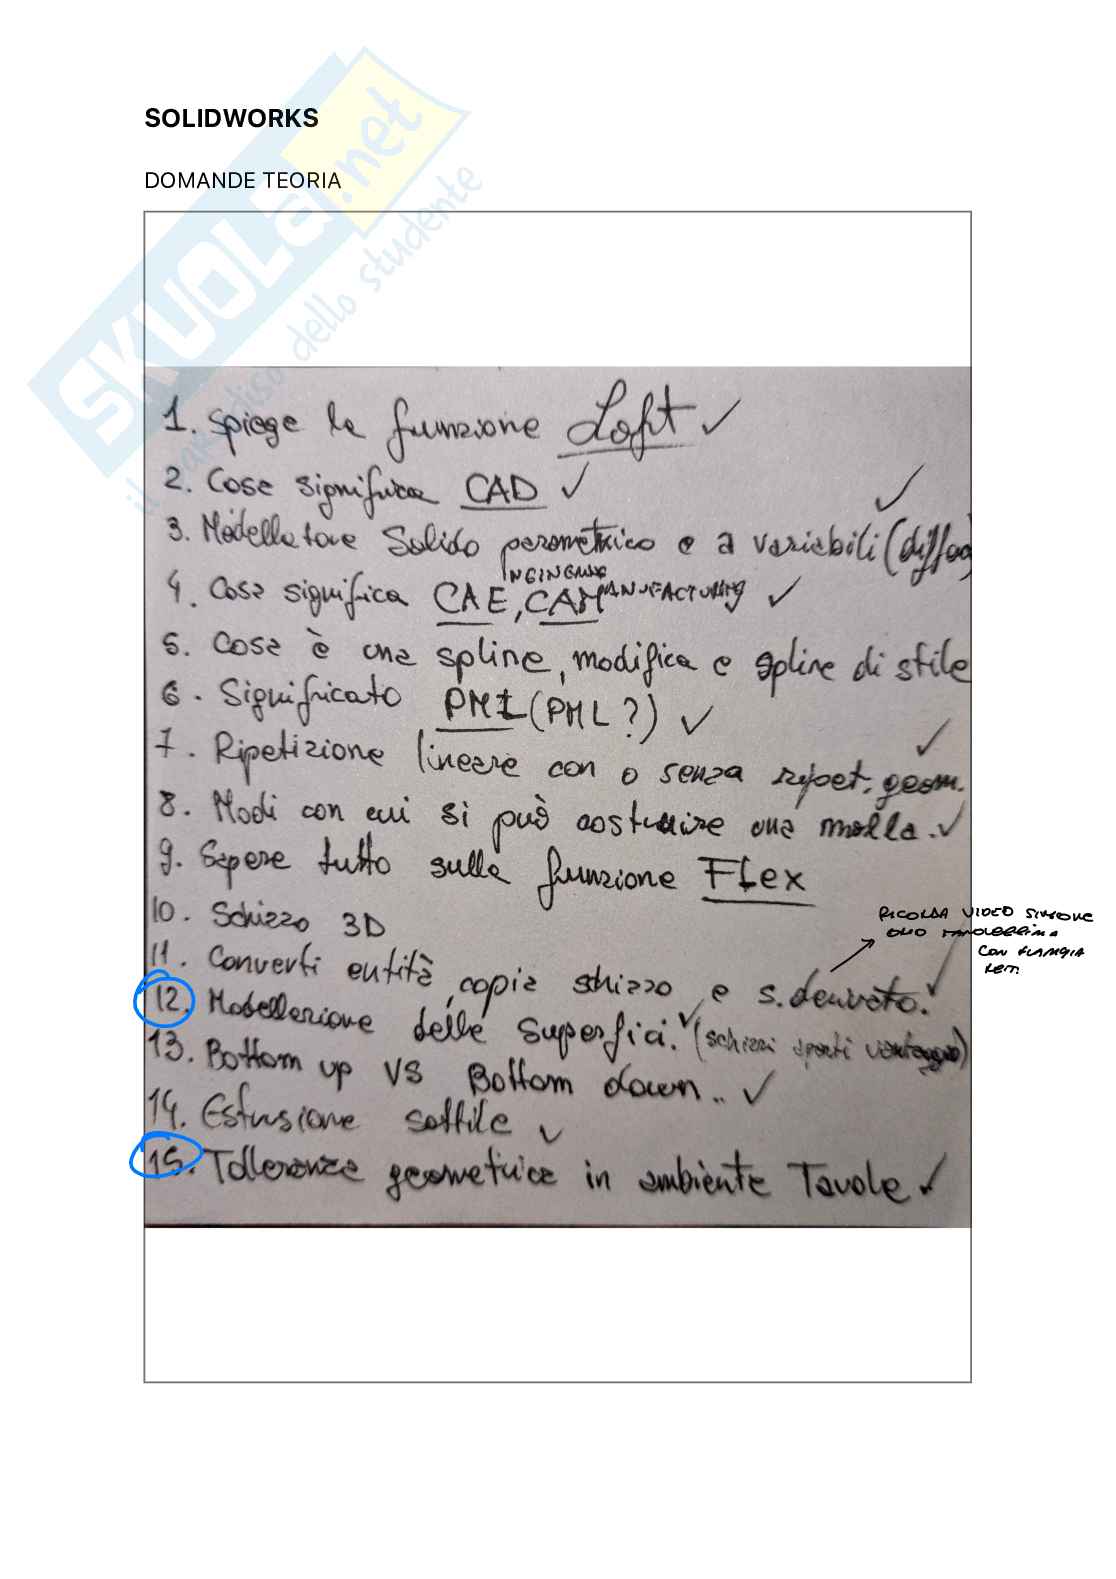 SOLIDWORKS
DOMANDE TEORIA
SKUOLA.net
il paradiso dello studente
1. Spiega la funzione Loft ✓
2. Cosa significa CAD ✓
3. Modellatore Solido parametrico e a variabili (diffe
4. Cosa significa CAE, CAM ANUFACTURING ✓
5. Cosa è una spline, modifica e spline di stile
6. Significato PMI (PML?) ✓
7. Ripetizione lineare con o senza ripet. geom. ✓
8. Modi con cui si può costruire una molla. ✓
9. Sapere tutto sulla funzione Flex
10. Schizzo 3D
RICORDA VIDEO
CON FLANGIA
11. Converti entità, copia schizzo e s. derivato. ✓
12. Modellazione delle Superfici. ✓ (schizzi aperti vantaggio)
13. Bottom up VS Bottom down.. ✓
14. Estrusione sottile ✓
15. Tolleranza geometrica in ambiente Tavole ✓